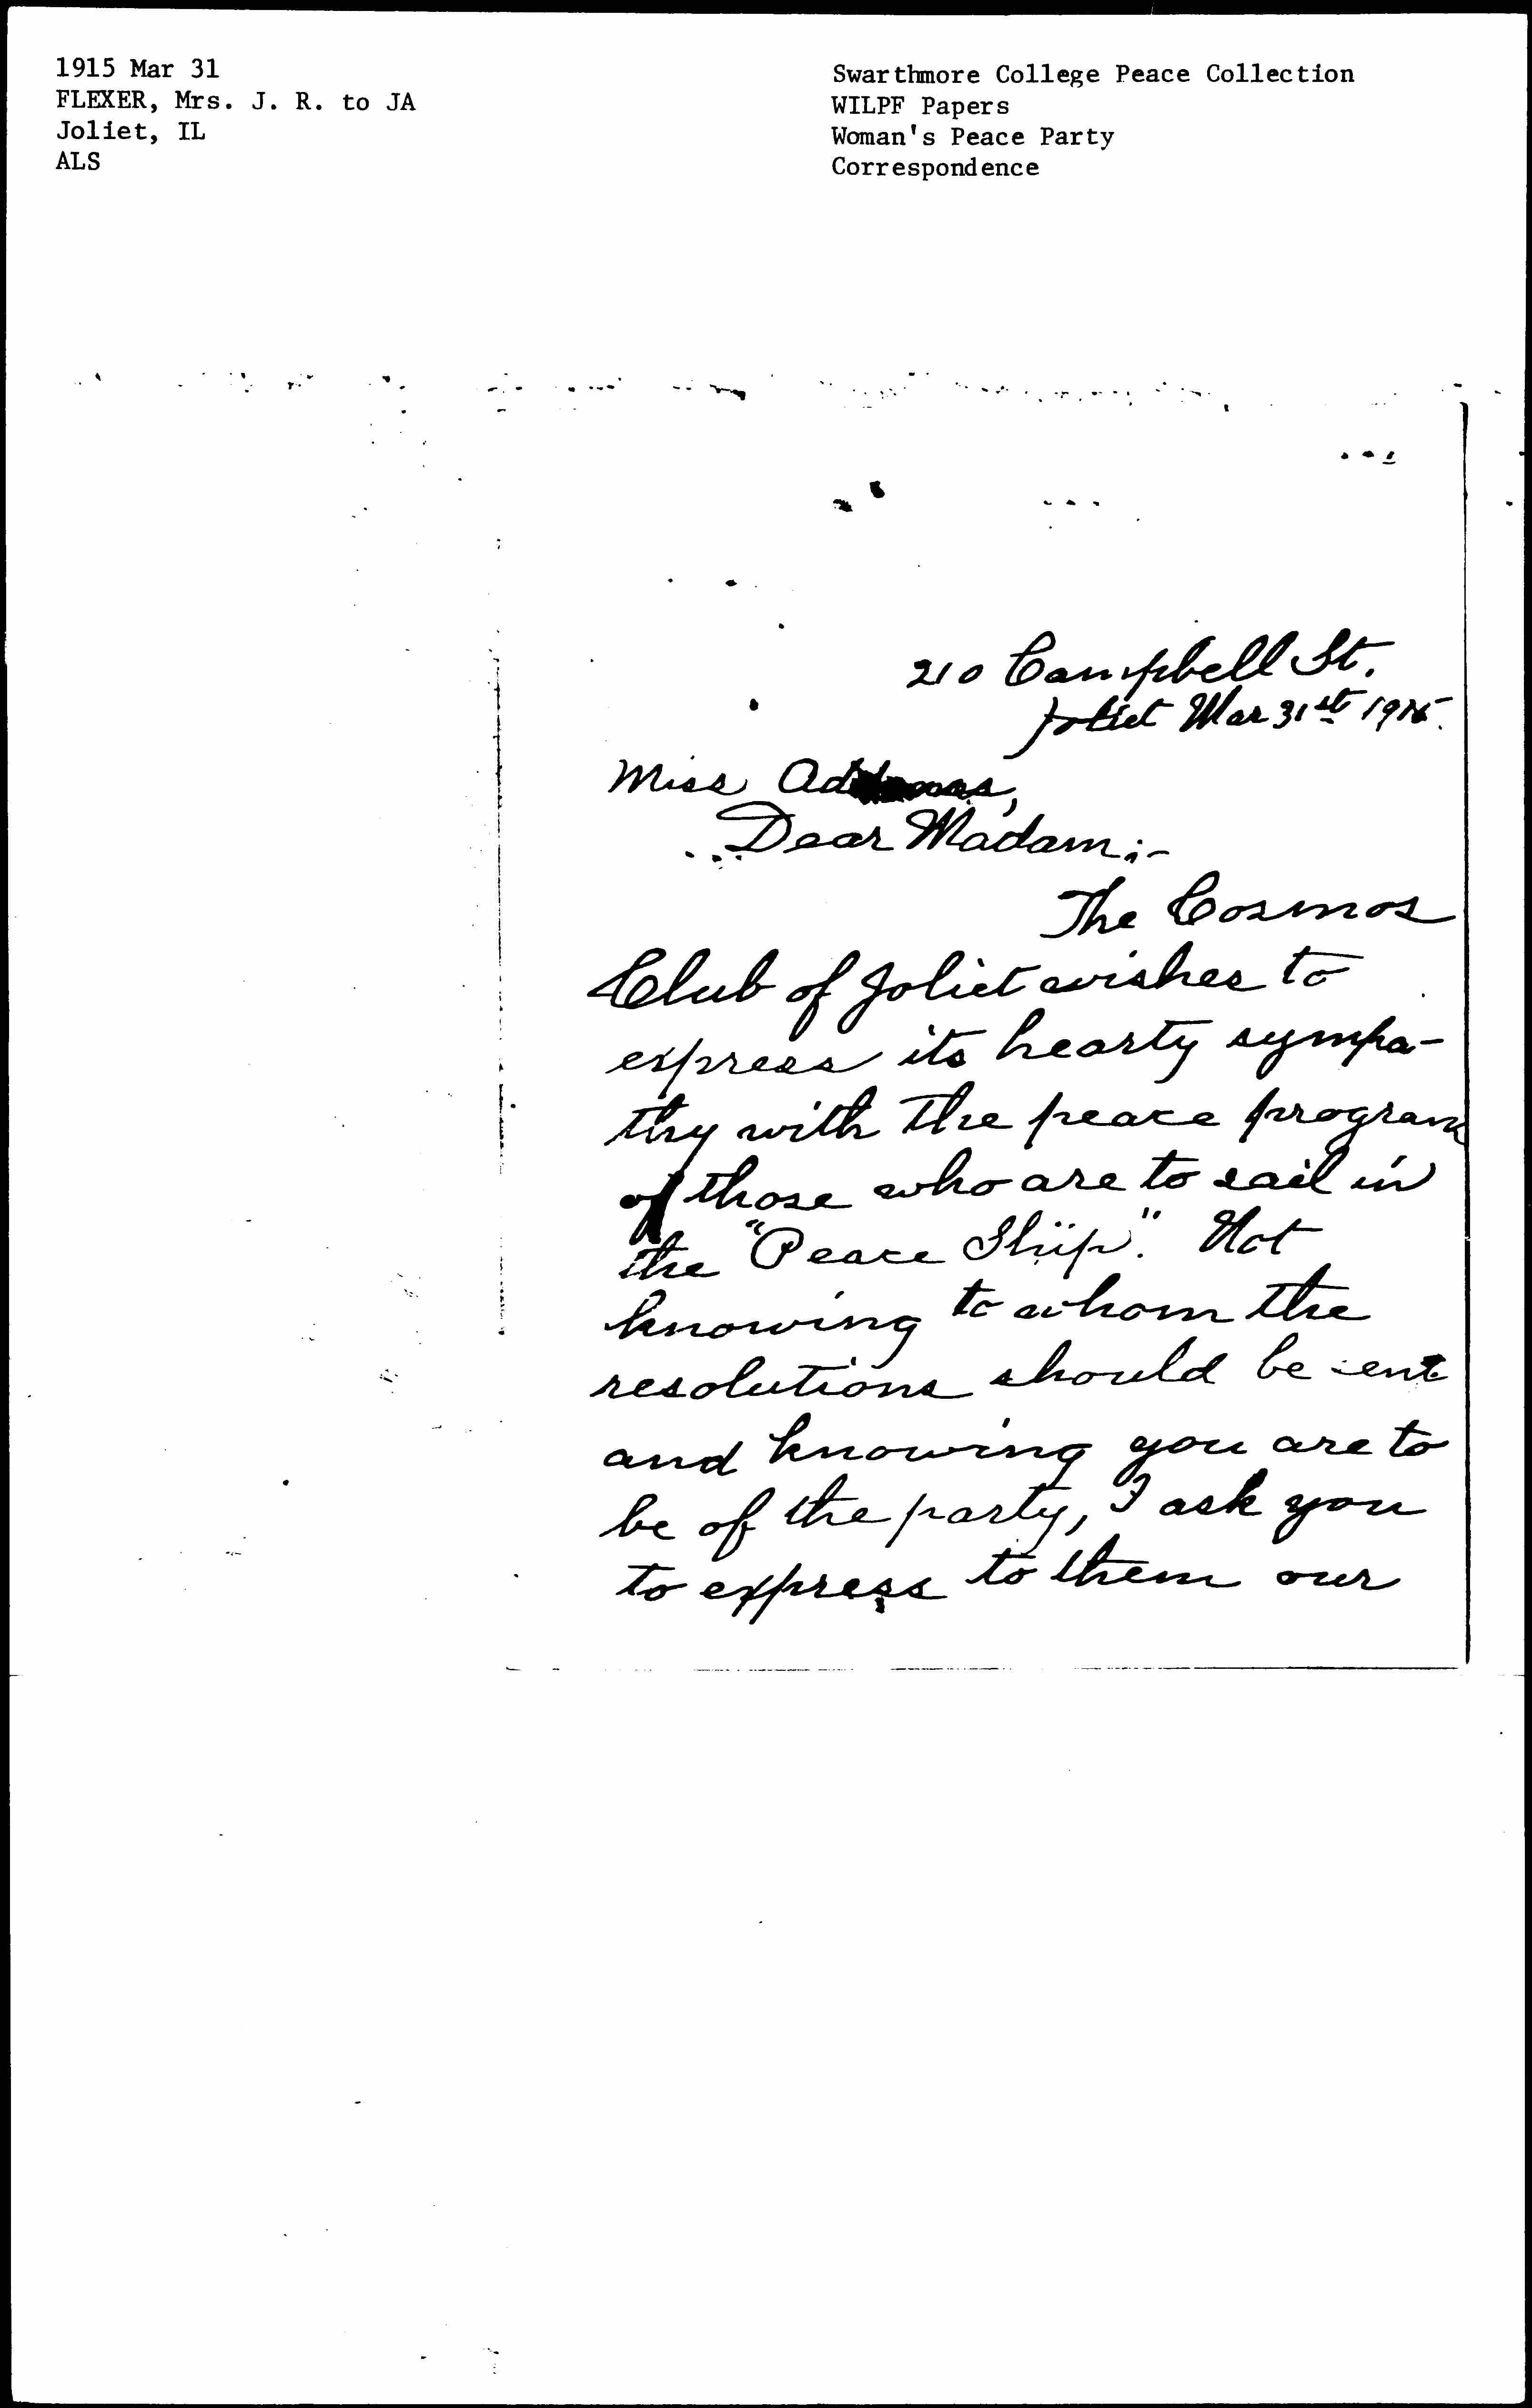 1915 Mar 31
FLEXER, Mrs. J. R. to JA
Joliet, IL
ALS
Swarthmore College Peace Collection
WILPF Papers
Woman's Peace Party
Correspondence
210 Campbell St.
Joliet Mar 31st 1915.
Miss Addams,
Dear Madam:-
The Cosmos
Club of Joliet wishes to
express its hearty sympa-
thy with the peace program
of those who are to sail in
the "Peace Ship". Not
knowing to whom the
resolutions should be sent
and knowing you are to
be of the party, I ask you
to express to them our